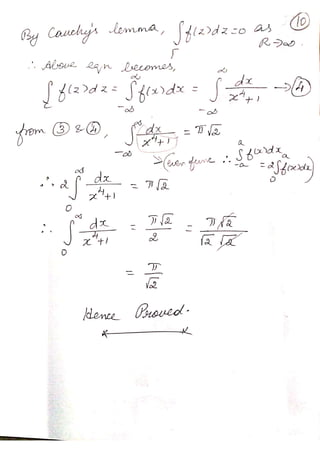 By Cauchy's lemma, ∫_Γ f(z)dz=0 as R→∞. (10)
∴ Above eqn becomes,
∫_C f(z)dz = ∫_{-∞}^{∞} f(x)dx = ∫_{-∞}^{∞} dx/(x⁴+1) → (4)
from (3) & (4), ∫_{-∞}^{∞} dx/(x⁴+1) = π√2
→ (even func ∴ ∫_{-a}^{a} f(x)dx = 2∫_0^a f(x)dx)
∴ 2∫_0^∞ dx/(x⁴+1) = π√2
∴ ∫_0^∞ dx/(x⁴+1) = π√2/2 = π√2/(√2 √2)
= π/√2
Hence Proved.